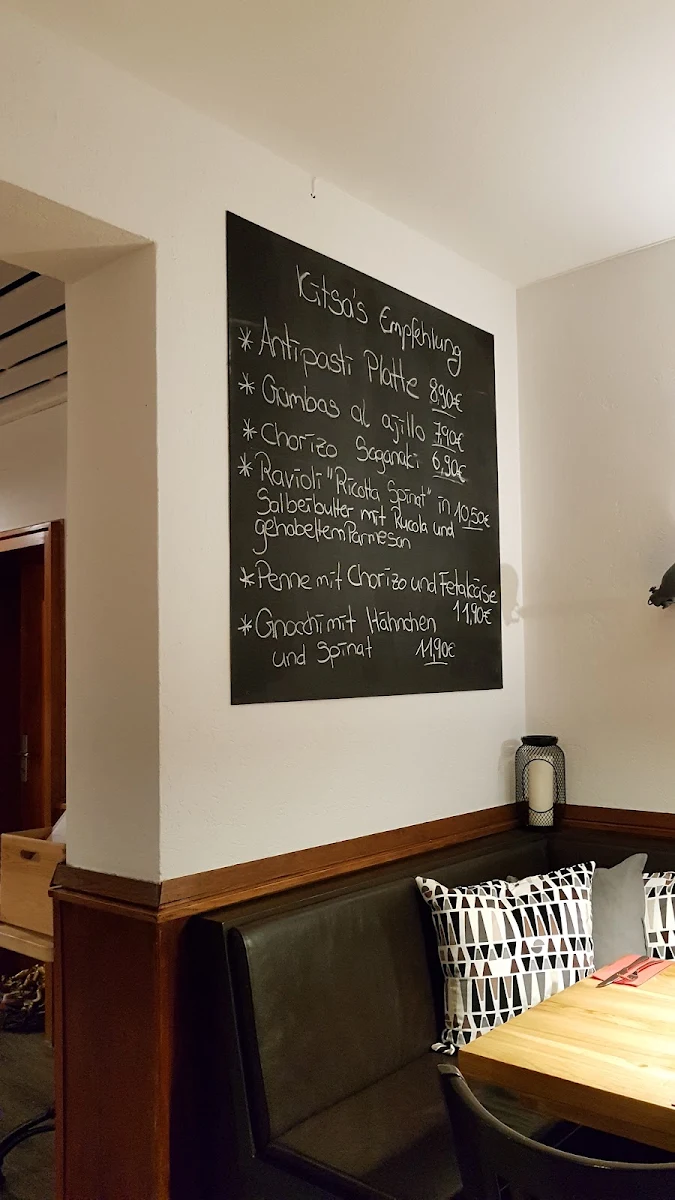 Kitsa's Empfehlung
* Antipasti Platte 8,90€
* Gambas al ajillo 7,90€
* Chorizo Saganaki 6,90€
* Ravioli "Ricotta Spinat" in 10,50€
Salbeibutter mit Rucola und
gehobeltem Parmesan
* Penne mit Chorizo und Fetakäse
11,90€
* Gnocchi mit Hähnchen
und Spinat 11,90€